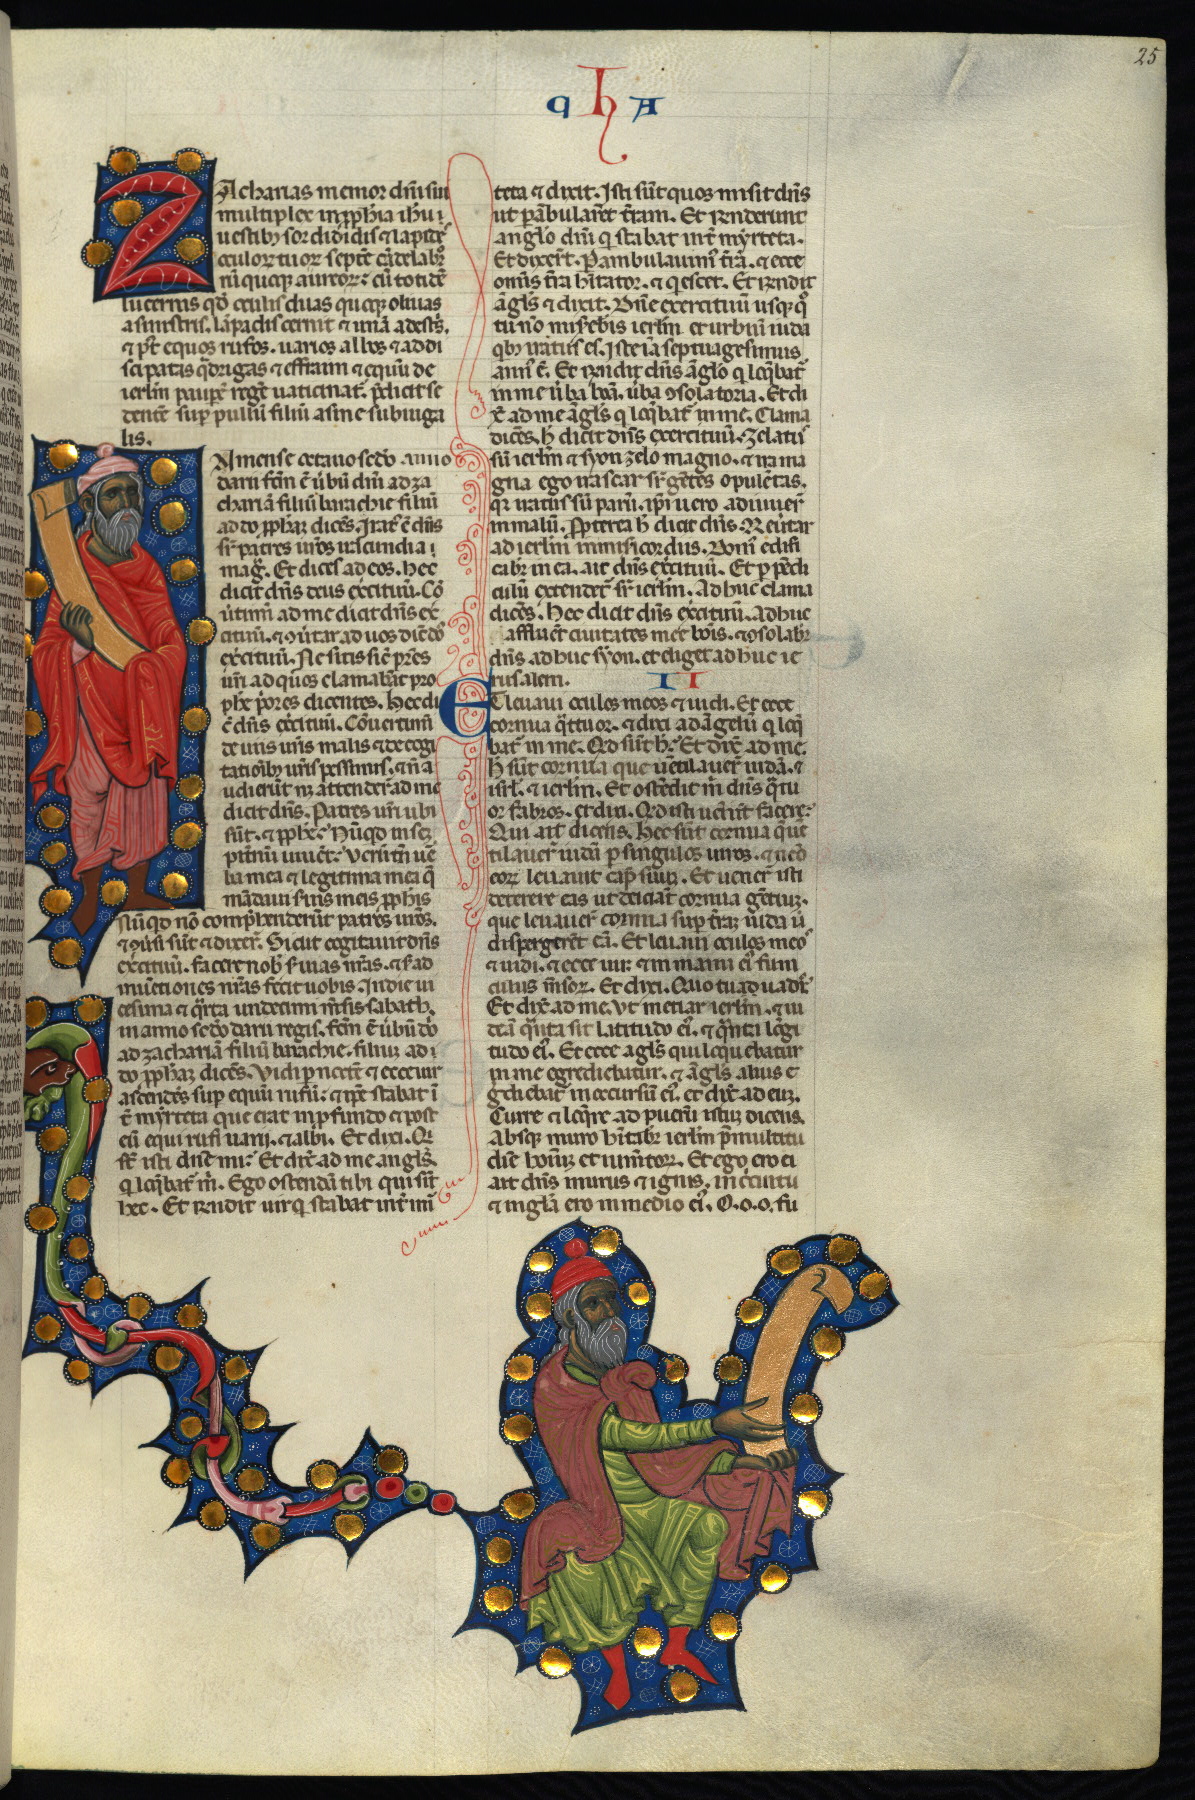 25
q h A
ZAcharias memor dñi sui
multiplex in pphia ihu i
uestib; sordidis & lapidē
oculor tuor septē cādelabr
lucernis qd oculis duas quoq; oliuas
a sinistris. lāpadis cernit & unā a dextˢ.
& pt equos rufos. uarios albos & a ddi
scipatis qdrigas & effraim & equū de
ierlm paupē regē uaticinat. pdicit se
dentē sup pullū filiū asine subiuga
lis.
IN mense octauo scdo anno
darii fcm ē ubū dñi ad za
chariā filiū barachie filiū
addo pphaz dices. Irat ē dñs
sr patres uros iracundia i
mag. Et dices ad eos. Hec
dicit dñs deus excituū. Co
utimi ad me dicit dñs ex
cituū. & utar ad uos dic dš
excituū. Ne sitis sic pres
uri ad quos clamabāt pro
phe pores dicentes. Hec di
c dñs excituū. Couertimi
de uiis uris malis & de cogi
tatioib; uris pessimis. & n a
udierūt nz attender ad me
dicit dñs. Patres uri ubi
sūt. & pphe. Nūqd in sepi
ternū uiuēt. Verūtn ue
ba mea & legitima mea q
mādaui suis meis pphis
nūqd nō comphenderūt patres uros.
& uersi sūt & dixer. Sicut cogitauit dñs
excituū. facere nob s uias nras. & s ad
inuētiones nras fecit uobis. In die ui
cesima & qrta undecimi msis sabath.
in anno scdo darii regis. fcm ē ubū dš
ad zachariā filiū barachie. filiuz ad
do pphaz dices. Vidi p noctē & ecce uir
ascendēs sup equū rufū. & ipe stabat i
t myrteta que erāt in pfundo & post
eū equi rufi uarij. & albi. Et dixi. Q
st isti dñe mi. Et dix ad me angls.
q lqbat ī m. Ego ostendā tibi qui sīt
hec. Et rndit uir q stabat int mi
teta & dixit. Isti sūt quos misit dñs
ut pābularēt trām. Et rnderunt
anglo dñi q stabat int myrteta.
Et dixert. Pambulauim trā. & ecce
omis tra hitator. & qescet. Et rndit
āgls & dixit. Dñe exercituū usq; q
tu nō misebis ierlm et urbiū iuda
qb; iratus es. Iste iā septuagesimus
anni ē. Et rndit dñs āglo q lqbat
in me uba boa. uba osolatoria. Et di
x ad me āgls q lqbat in me. Clama
dicēs. h dicit dñs exercituū. Zelatu
sū ierlm & syon zelo magno. & ira ma
gna ego irascar sr gētes opulētas.
qr iratus sū parū. ipi uero adiuuer
in malū. Pterea h dicit dñs. Reutar
ad ierlm in misicordiis. Domˢ edifi
cabr in ea. ait dñs excituū. Et p pēdi
culū extendet sr ierlm. Adhuc clama
dicēs. Hec dicit dñs excituū. Adhuc
affluēt ciuitates mee bois. & osolabr
dñs adhuc syon. et eliget adhuc ie
rusalem. II
ET leuaui oculos meos & uidi. Et ecce
cornua qttuor. & dixi ad āgelū q lcq
bat in me. Qd sūt h. Et dix ad me.
h sūt cornua que uētilauer iudā. &
isrl. & ierlm. Et ostēdit m dñs qtu
or fabros. et dixi. Qd isti uenīt facere.
Qui ait dicens. Hec sūt cornua que
tilauer iudā p singulos uiros. & neō
eoz leuauit caput suuz. Et uener isti
deterere eas ut deiciāt cornua gētiuz.
que leuauer cornua sup traz iuda ut
dispergerēt eā. Et leuaui oculos meo
& uidi. & ecce uir & in manu eˢ funi
culus msoz. Et dixi. Quo tu uadis
Et dix ad me. Vt metiar ierlm. & ui
deā qnta sit latitudo eˢ. & qnta lōgi
tudo eˢ. Et ecce agls qui loquebatur
in me egrediebatur. & āgls alius e
grediebat in occursū eˢ. et dix ad euz.
Curre & loqre ad pueruz istuz dicens.
Absq; muro hītabr ierlm p multitu
die hoīuz et iumtoz. Et ego ero ei
ait dñs murus & ignis. in circuitu
& in gla ero in medio eˢ. O. o. o. fu